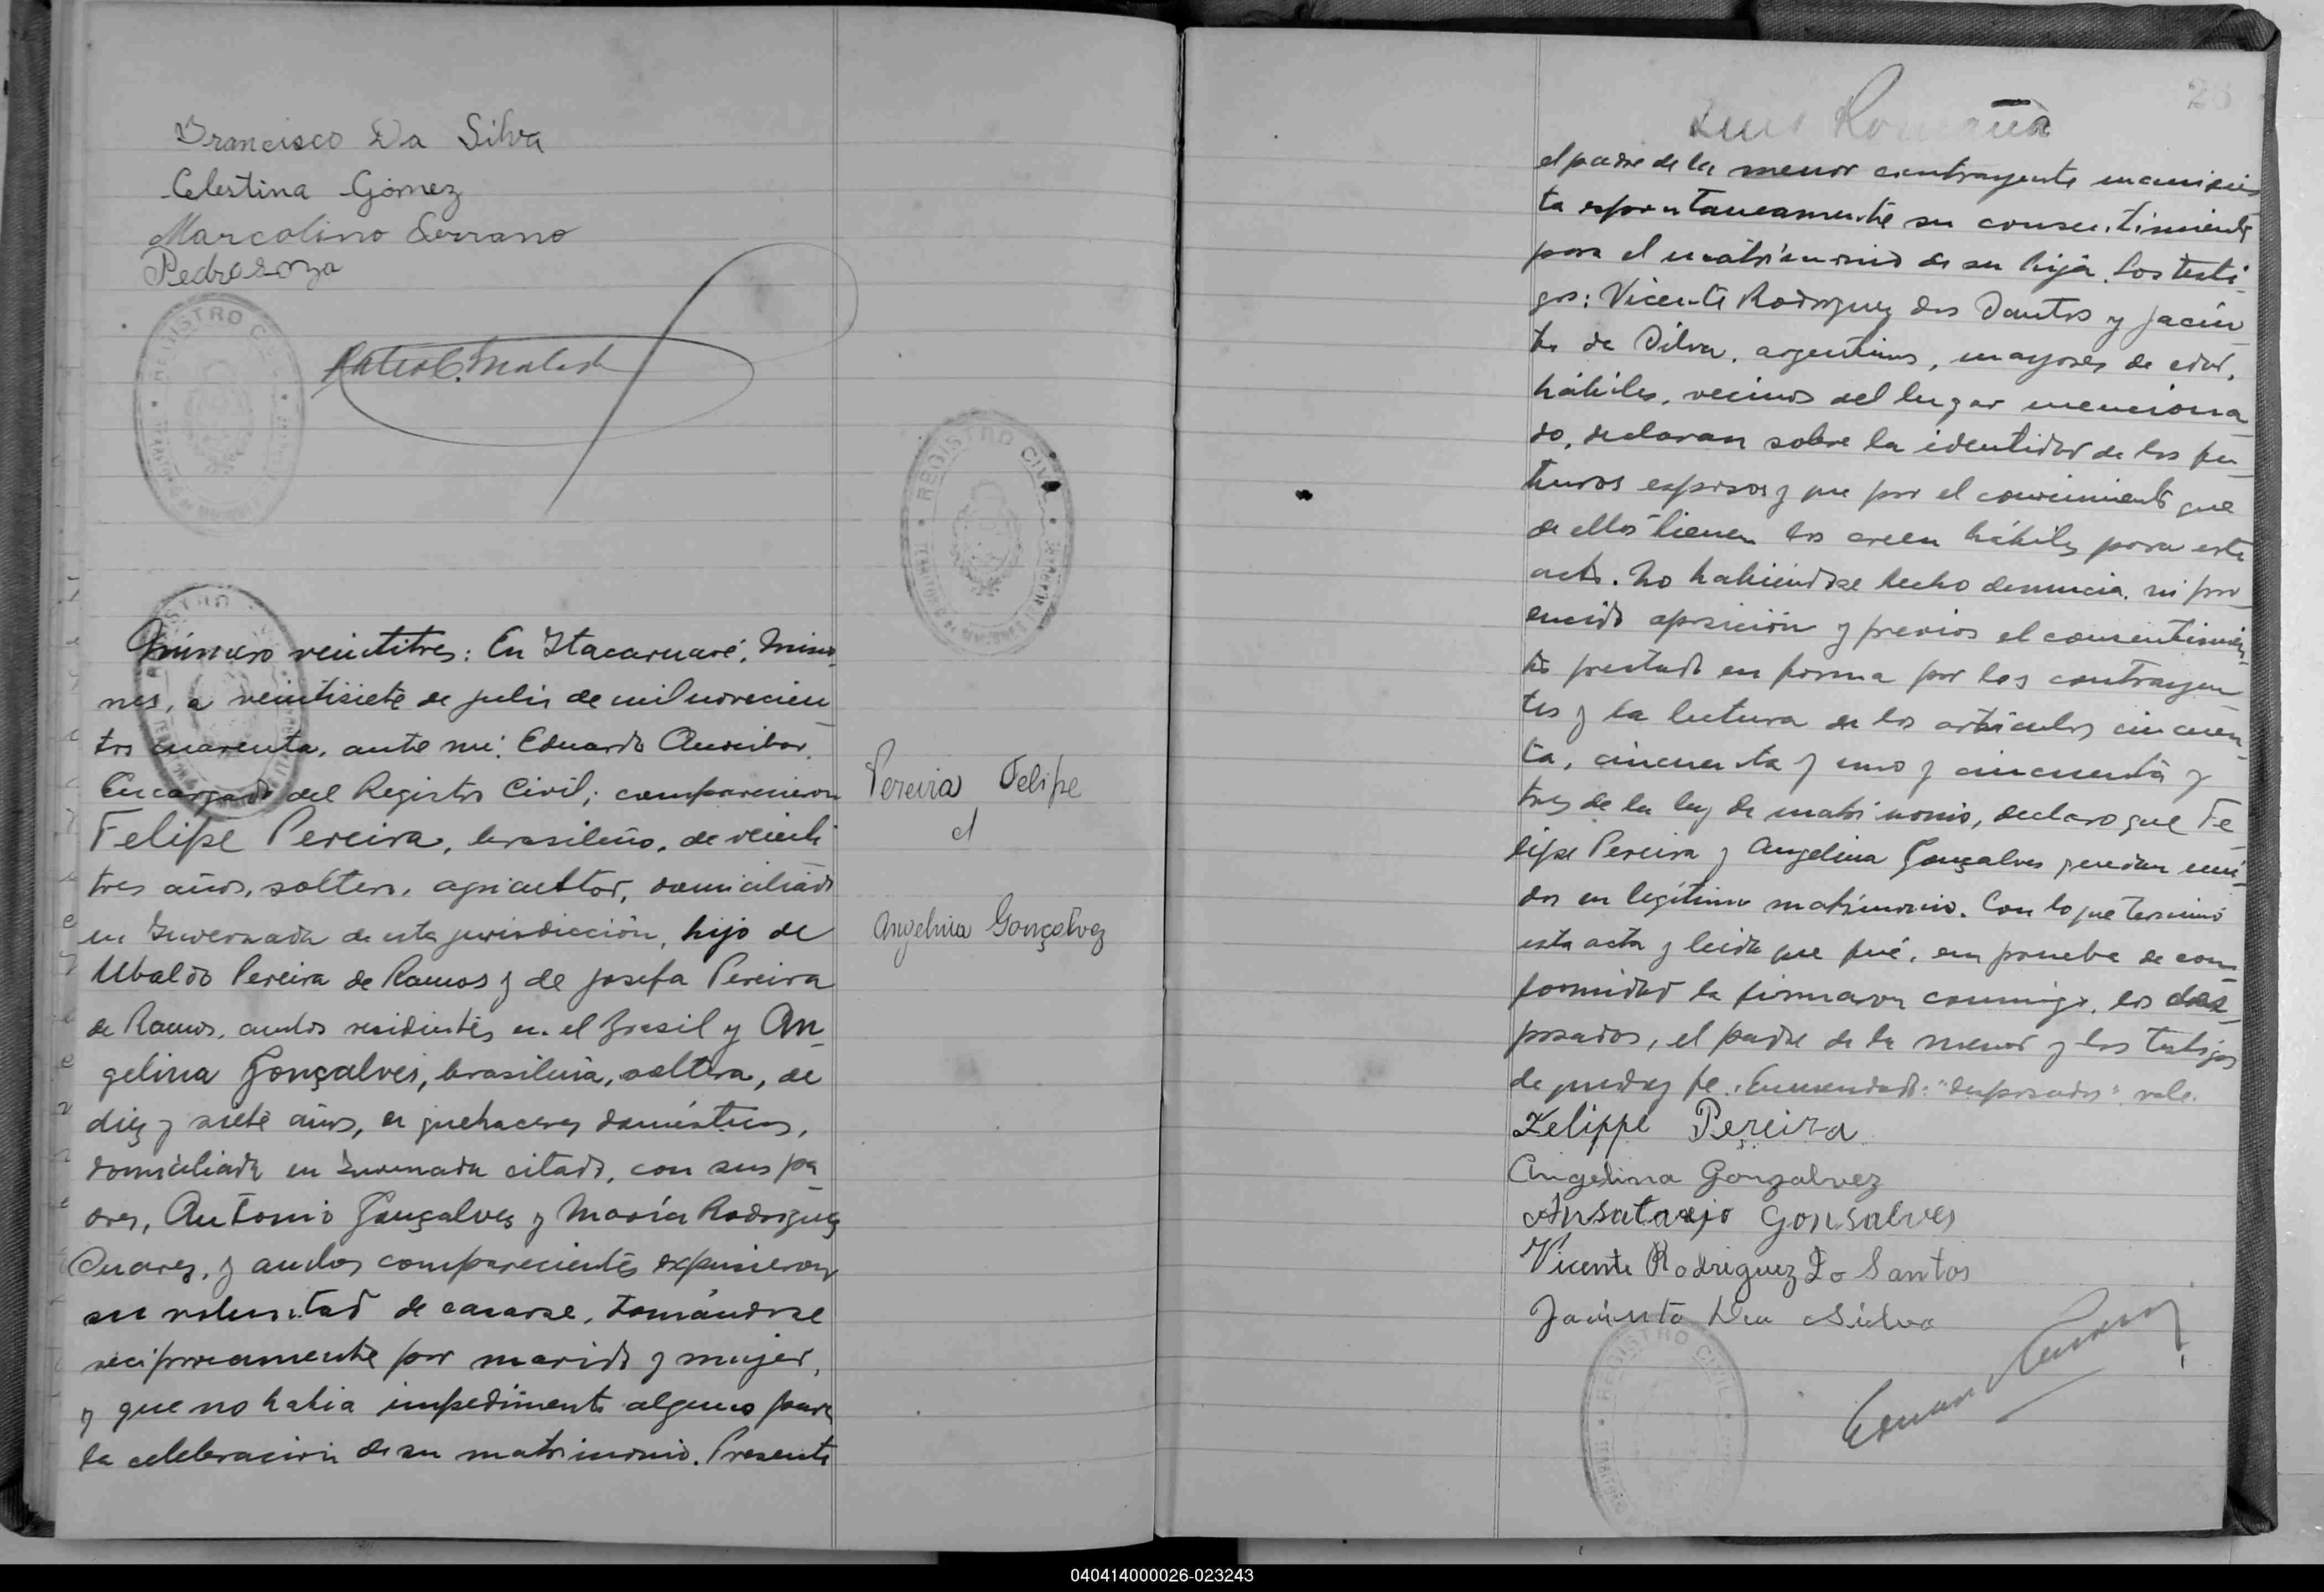 Francisco Da Silva
Celestina Gómez
Marcolino Serrano
Pedro
REGISTRO CIVIL
Número veintitres: En Itacaruaré, Misio
nes, a veintisiete de julio de mil novecien
tos cuarenta, ante mí: Eduardo
Encargado del Registro Civil; comparecieron
Felipe Pereira, brasileño, de veinti
tres años, soltero, agricultor, domiciliado
en Invernada de esta jurisdicción, hijo de
Ubaldo Pereira de Ramos y de Josefa Pereira
de Ramos, ambos residentes en el Brasil y An
gelina Gonçalves, brasileña, soltera, de
diez y siete años, de quehaceres domésticos,
domiciliada en Invernada citado, con sus pa
dres, Antonio Gonçalves y María Rodriguez
y ambos comparecientes expusieron
su voluntad de casarse, tomándose
reciprocamente por marido y mujer,
y que no habia impedimento alguno para
la celebración de su matrimonio. Presente
REGISTRO CIVIL
Pereira Felipe
Angelina Gonçalvez
Luis Romaña
el padre de la menor contrayente manifies
ta espontaneamente su consentimiento
para el matrimonio de su hija. Los testi
gos: Vicente Rodriguez dos Santos y Jacin
to da Silva, argentinos, mayores de edad,
hábiles, vecinos del lugar menciona
do, declaran sobre la identidad de los fu
turos esposos y que por el conocimiento que
de ellos tienen los creen hábiles para este
acto. No habiéndose hecho denuncia, ni pro
ducido oposición y previos el consentimien
to prestado en forma por los contrayen
tes y la lectura de los artículos cincuen
ta, cincuenta y uno y cincuenta y
tres de la ley de matrimonio, declaro que Fe
lipe Pereira y Angelina Gonçalves quedan uni
dos en legítimo matrimonio. Con lo que terminó
esta acta y leida que fué, en prueba de con
formidad la firmaron conmigo, los des
posados, el padre de la menor y los testigos
de que doy fe. Enmendado: "desposados": vale.
Felippe Pereira
Angelina Gonzalvez
Gonsalves
Vicente Rodriguez Do Santos
Jacinto Da Silva
REGISTRO CIVIL
040414000026-023243